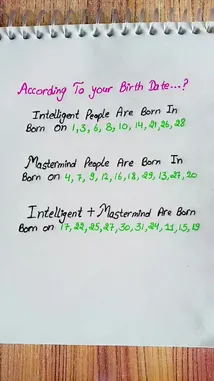 According To your Birth Date...?
Intelligent People Are Born In
Born on 1,3,6,8,10,14,21,26,28
Mastermind People Are Born In
Born on 4,7,9,12,16,18,29,13,27,20
Intelligent + Mastermind Are Born
Born on 17,22,25,27,30,31,24,11,15,19